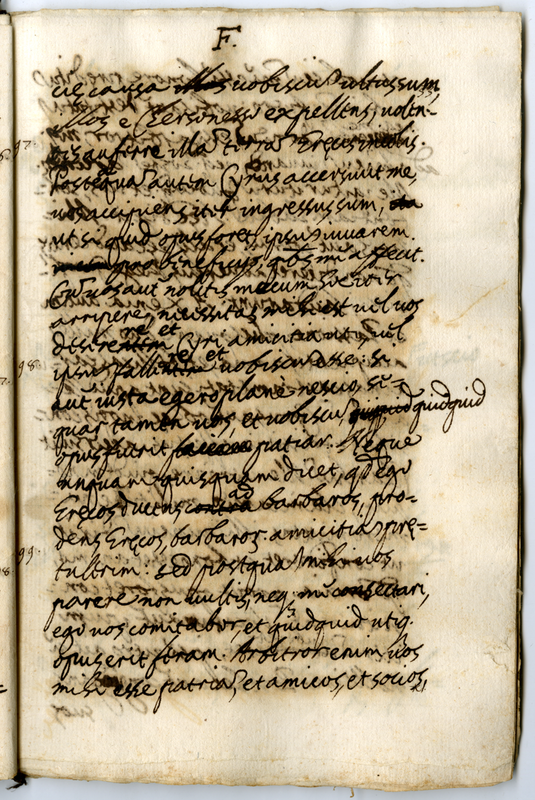 F.
ciȩ causa vobiscũ ultus sum,
illos e Chersoneso expellens, volen-
97. tes auferre illã terrã Grȩcis incolis.
Postquã autem Cyrus accersivit me,
vos accipiens iter ingressus sum,
ut si quid opus foret ipsũ iuvarem
pro beneficijs, qbs me affecit.
Cũ vos aut nolitis mecum iter
arripere, necessitas mihi est vel vos
re et
deserentem Cyri amicitia uti, vel
re et
98. ipsũ fallentem vobiscũ esse. Si
aut iusta egero plane nescio, se-
quar tamen vos, et vobiscũ quidquid
opus fuerit patiar. Neque
unquam quisquam dicet, qd ego
ad
Grȩcos ductus contra barbaros, pro-
dens Grȩcos, barbaror. amicitiã prȩ-
99. tulerim: sed postquã mihi vos
parere non vultis, neq. me consectari,
ego vos comitabor, et quidquid utiq.
opus erit feram. Arbitror enim vos
mihi esse patriã, et amicos, et socios,